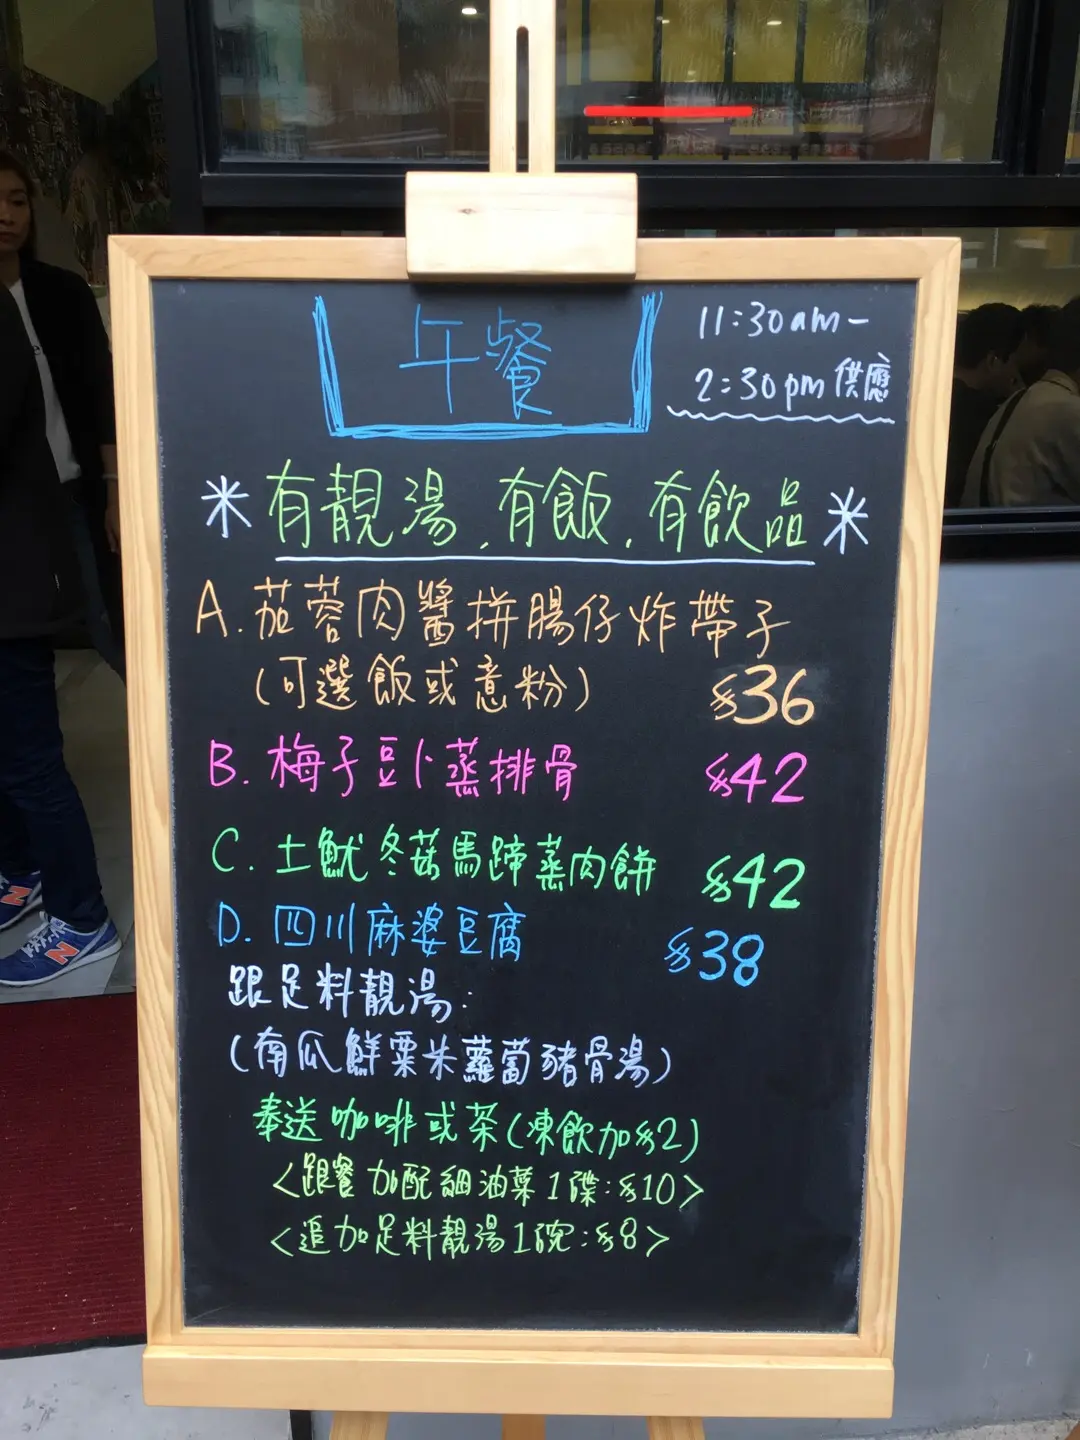 午餐
11:30am-
2:30pm供應
*有靚湯,有飯,有飲品*
A.茄蓉肉醬拼腸仔炸帶子
(可選飯或意粉) $36
B.梅子豆卜蒸排骨 $42
C.土魷冬菇馬蹄蒸肉餅 $42
D.四川麻婆豆腐 $38
跟足料靚湯:
(南瓜鮮粟米蘿蔔豬骨湯)
奉送咖啡或茶(凍飲加$2)
<跟餐加配細油菜1碟:$10>
<追加足料靚湯1碗:$8>
N
N